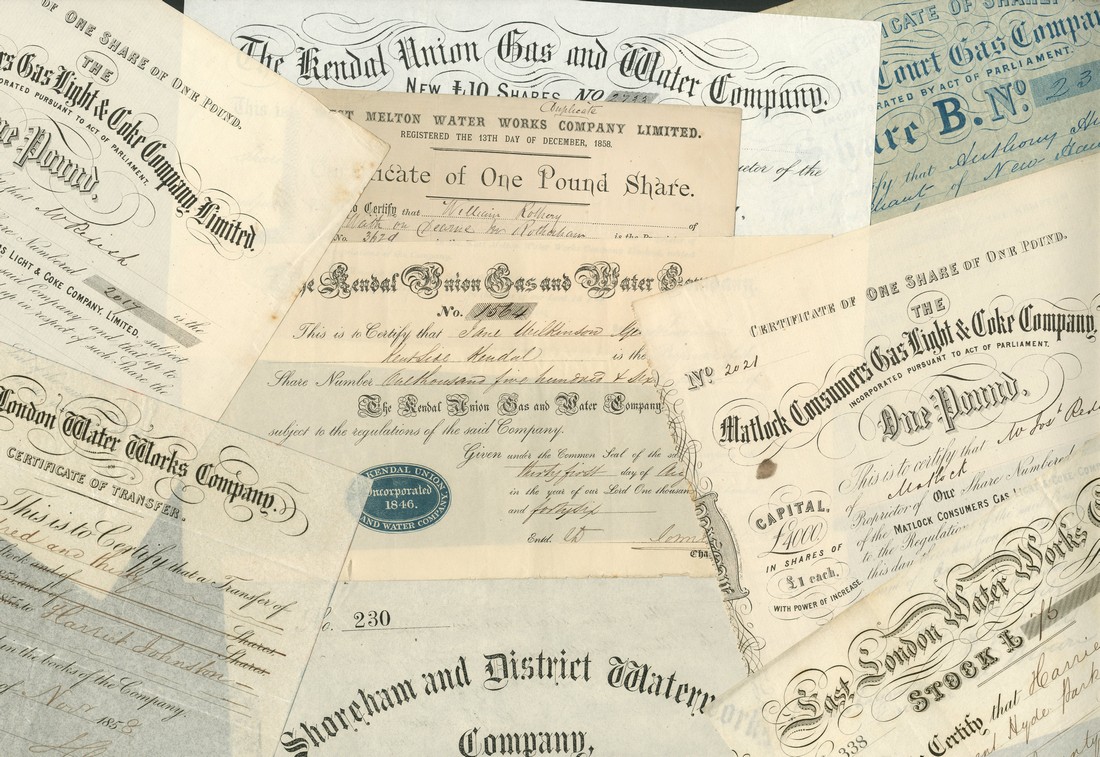 OF ONE SHARE OF ONE POUND.
THE
Gas Light & Coke Company, Limited.
INCORPORATED PURSUANT TO ACT OF PARLIAMENT.
One Pound,
that
Numbered 2017 is the
GAS LIGHT & COKE COMPANY, LIMITED, subject
said Company and that up to
in respect of such Share the
The Kendal Union Gas and Water Company.
NEW £10 SHARES NO
of the
CERTIFICATE OF
Court Gas Company
BY ACT OF PARLIAMENT.
B. No. 23
that Anthony
of New
Duplicate
MELTON WATER WORKS COMPANY LIMITED.
REGISTERED THE 13TH DAY OF DECEMBER, 1858.
Certificate of One Pound Share.
to Certify that William of
Wath on Dearne nr Rotherham is the
No.
Kendal Union Gas and Water
No. 1564
This is to Certify that Jane Wilkinson
Kendal is the
Share Number One thousand five hundred & Six
The Kendal Union Gas and Water Company
subject to the regulations of the said Company.
Given under the Common Seal of the
thirty first day of Aug
in the year of our Lord One thousand
and forty six
Entd.
KENDAL UNION
Incorporated
1846.
AND WATER COMPANY
CERTIFICATE OF ONE SHARE OF ONE POUND.
THE
No 2021
Matlock Consumers Gas Light & Coke Company,
INCORPORATED PURSUANT TO ACT OF PARLIAMENT.
One Pound,
This is to certify that Mr Jos.
of Matlock
Proprietor of One Share Numbered
of the MATLOCK CONSUMERS GAS
to the Regulation
this day of
CAPITAL,
£4000,
IN SHARES OF
£1 each,
WITH POWER OF INCREASE.
London Water Works Company.
CERTIFICATE OF TRANSFER.
This is to Certify that a Transfer of
and
Shares
Shares
Harriet Johnston
in the books of the Company.
of Nov 1858
230
Shoreham and District Waterr
Company,
East London Water Works
STOCK £
338
Certify that
Hyde Park